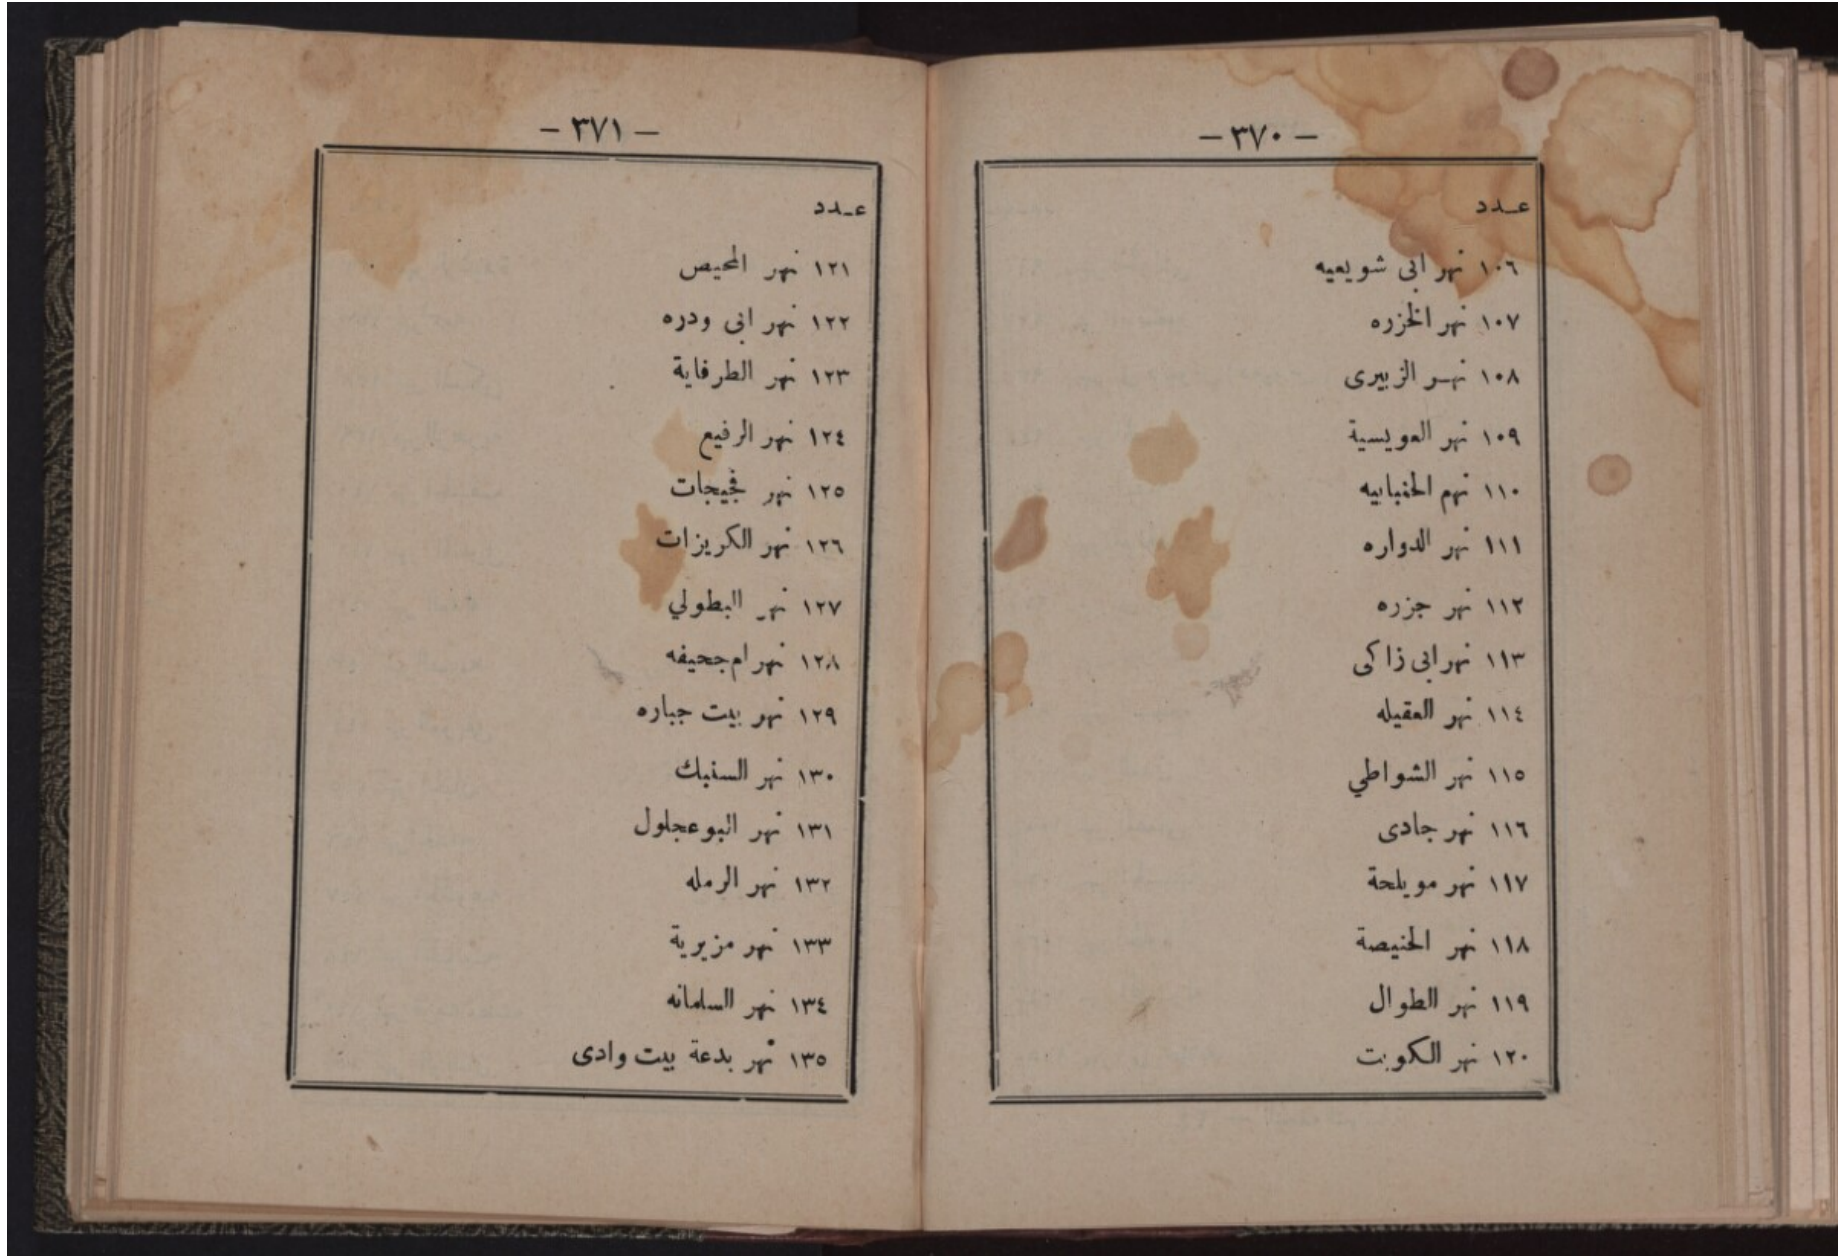 — ٣٧٠ —
عـدد
١٠٦ نهر ابى شويعيه
١٠٧ نهر الخزره
١٠٨ نهـر الزبيرى
١٠٩ نهر العويسية
١١٠ نهم الحنبابيه
١١١ نهر الدواره
١١٢ نهر جزره
١١٣ نهر ابى زاكى
١١٤ نهر العقيله
١١٥ نهر الشواطي
١١٦ نهر جادى
١١٧ نهر مويلحة
١١٨ نهر الخنيصة
١١٩ نهر الطوال
١٢٠ نهر الكوبت
— ٣٧١ —
عـدد
١٢١ نهر المحيص
١٢٢ نهر ابى ودره
١٢٣ نهر الطرفاية
١٢٤ نهر الرفيع
١٢٥ نهر
١٢٦ نهر الكريزات
١٢٧ نهر البطولي
١٢٨ نهر ام جحيفه
١٢٩ نهر بيت جباره
١٣٠ نهر السنبك
١٣١ نهر البو عجلول
١٣٢ نهر الرمله
١٣٣ نهر مزيرية
١٣٤ نهر السلمانه
١٣٥ نهر بدعة بيت وادى